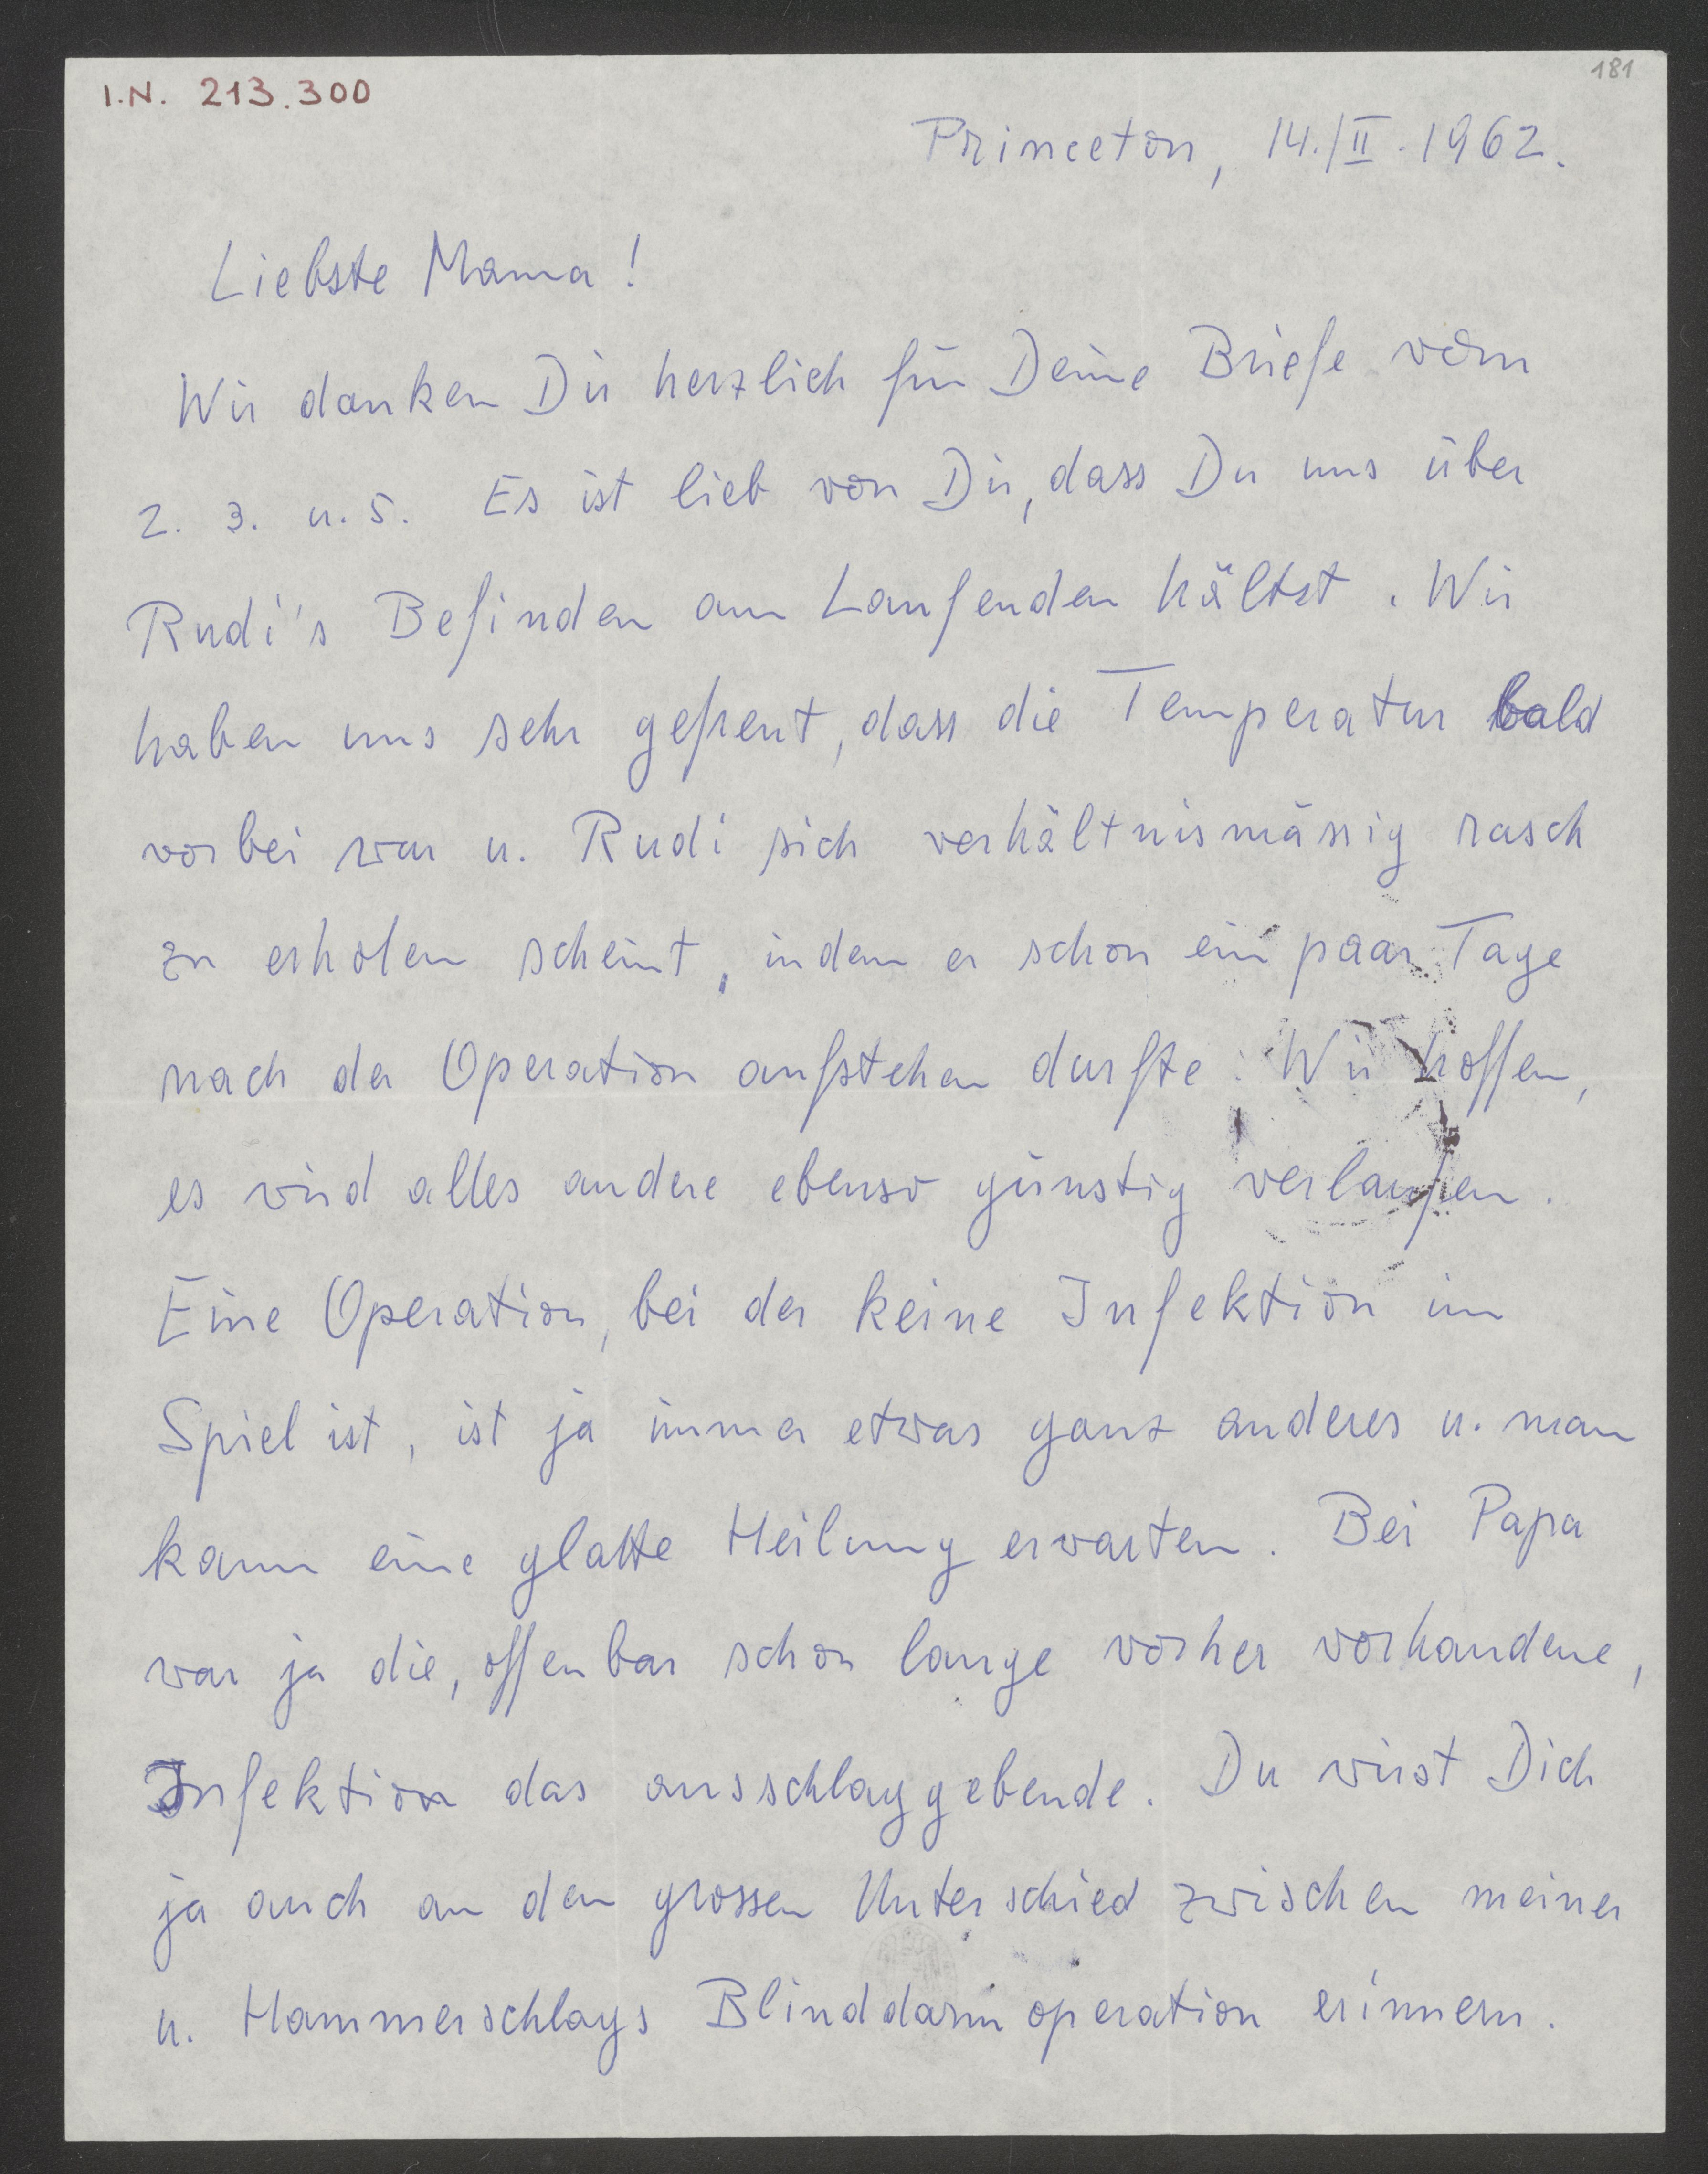 I.N. 213.300
181
Princeton, 14./II. 1962.
Liebste Mama!
Wir danken Dir herzlich für Deine Briefe vom
2. 3. u. 5. Es ist lieb von Dir, dass Du uns über
Rudi's Befinden am Laufenden hältst. Wir
haben uns sehr gefreut, dass die Temperatur bald
vorbei war u. Rudi sich verhältnismässig rasch
zu erholen scheint, indem er schon ein paar Tage
nach der Operation aufstehen durfte. Wir hoffen,
es wird alles andere ebenso günstig verlaufen.
Eine Operation, bei der keine Infektion im
Spiel ist, ist ja immer etwas ganz anderes u. man
kann eine glatte Heilung erwarten. Bei Papa
war ja die, offenbar schon lange vorher vorhandene,
Infektion das ausschlaggebende. Du wirst Dich
ja auch an den grossen Unterschied zwischen meiner
u. Hammerschlags Blinddarmoperation erinnern.